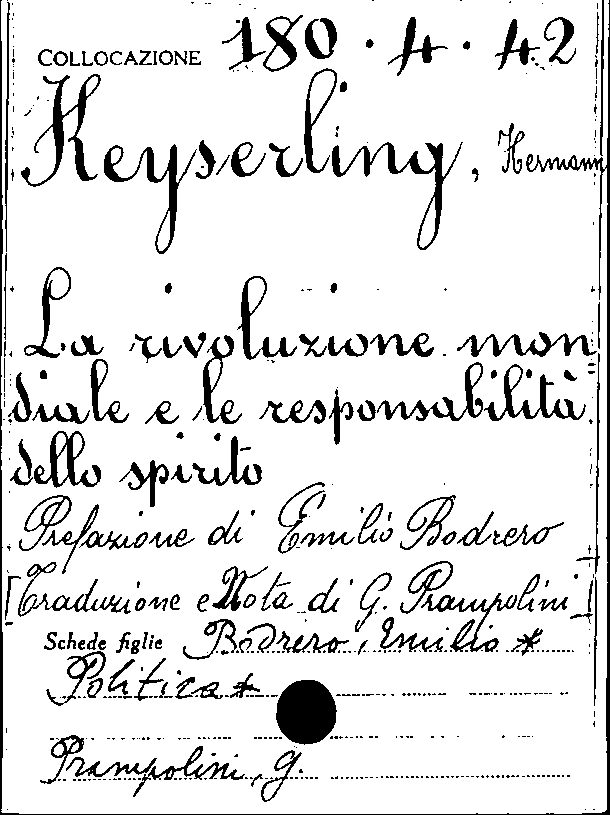 COLLOCAZIONE 180.4.42
Keyserling, Hermann
La rivoluzione mon
diale e le responsabilità
dello spirito
Prefazione di Emilio Bodrero
[Traduzione e Nota di G. Prampolini]
Schede figlie Bodrero, Emilio *
Politica *
Prampolini, G.